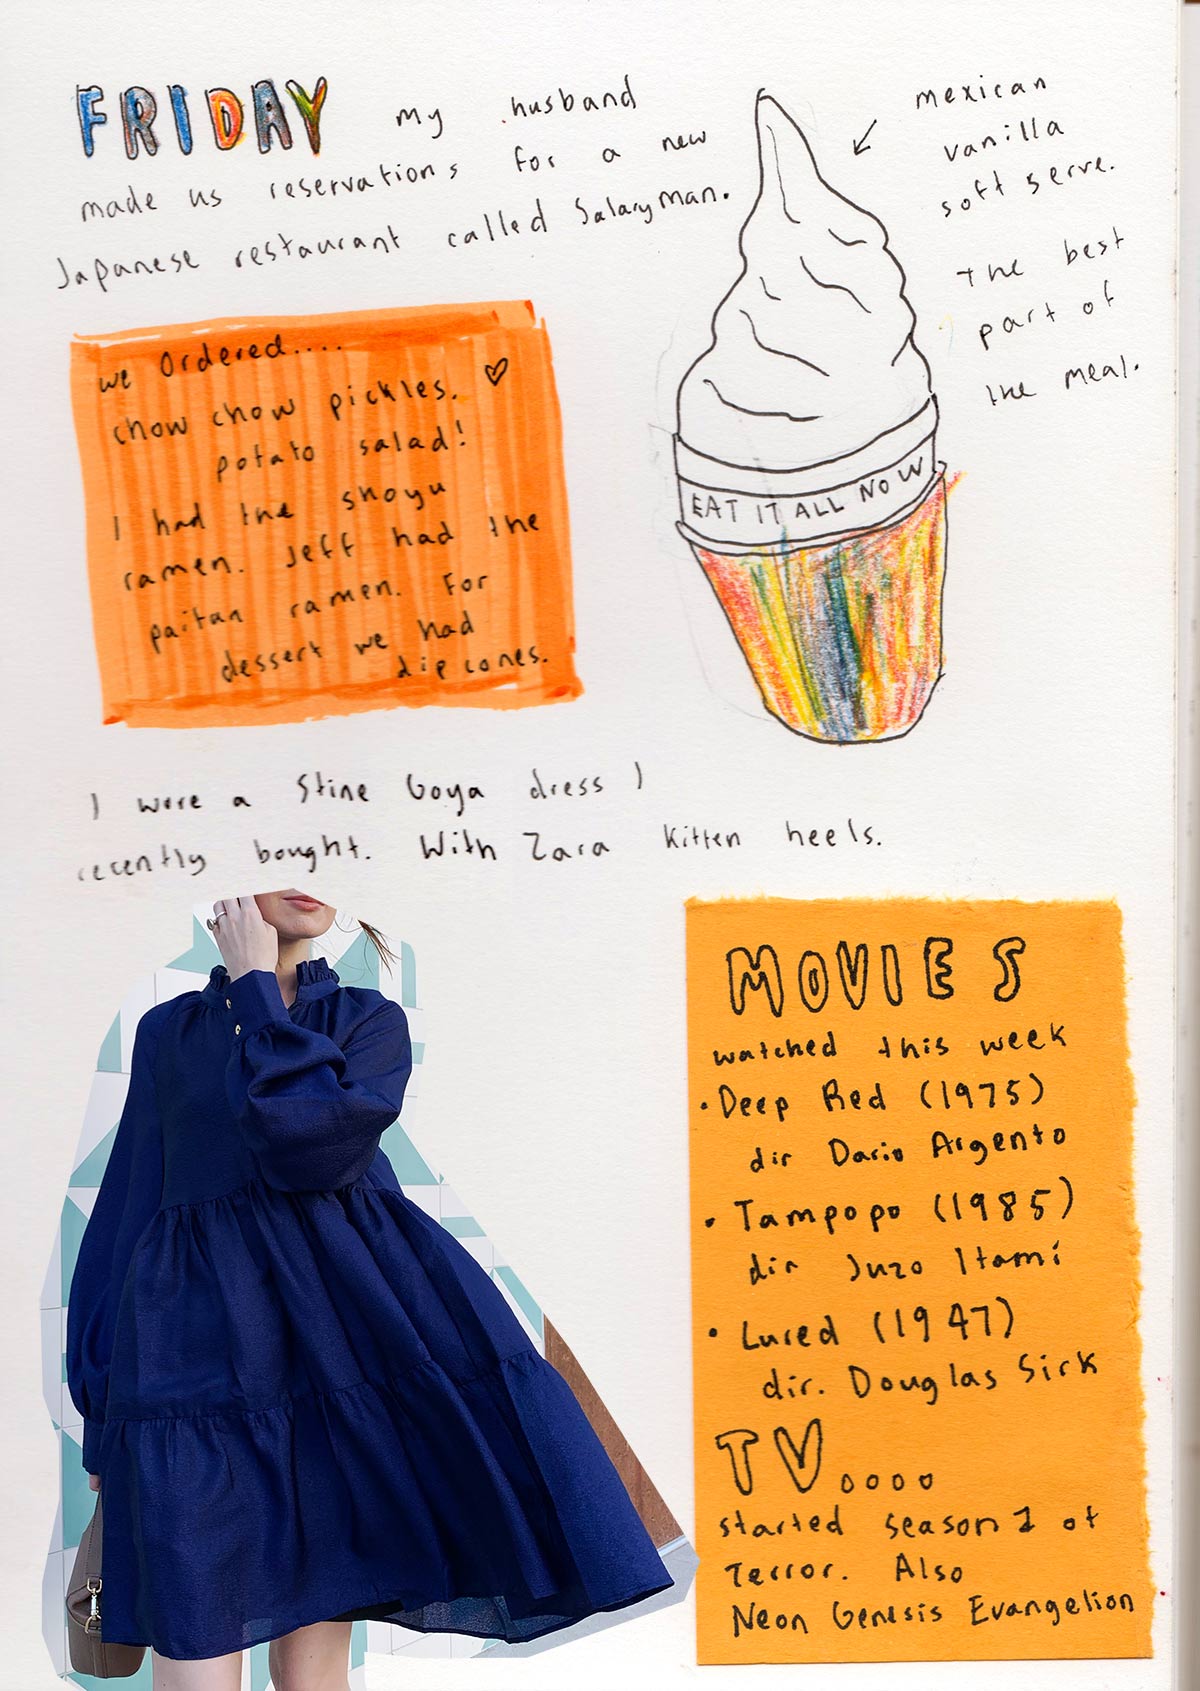 FRIDAY my husband
made us reservations for a new
Japanese restaurant called Salaryman.
mexican
vanilla
soft serve.
The best
part of
the meal.
we Ordered....
chow chow pickles. ♡
potato salad!
I had the shoyu
ramen. Jeff had the
paitan ramen. For
dessert we had
dip cones.
EAT IT ALL NOW
I wore a Stine Goya dress I
recently bought. With Zara kitten heels.
MOVIES
watched this week
• Deep Red (1975)
dir Dario Argento
• Tampopo (1985)
dir Juzo Itami
• Lured (1947)
dir. Douglas Sirk
TV....
started season 1 of
Terror. Also
Neon Genesis Evangelion